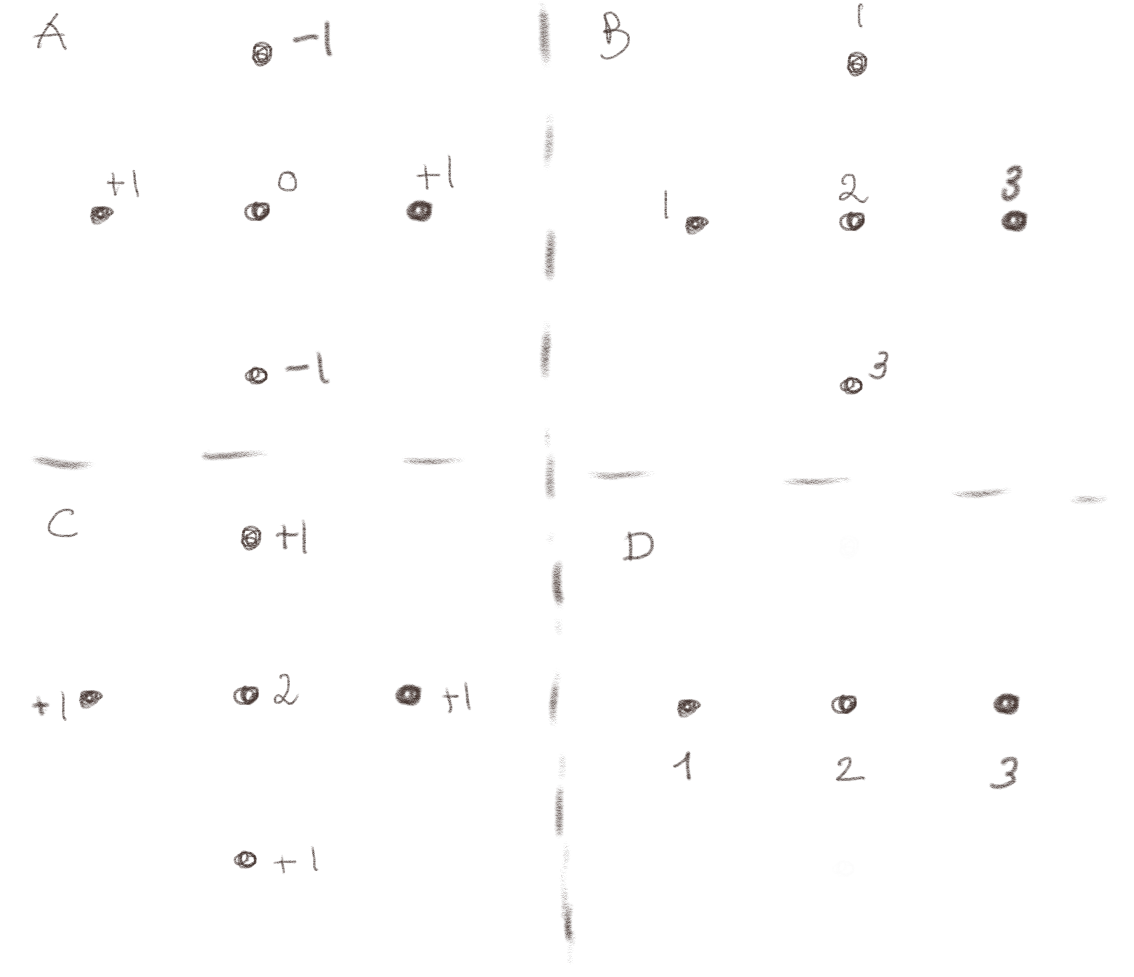 A
-1
+1 0 +1
-1
B
1
1 2 3
3
C
+1
+1 2 +1
+1
D
1 2 3